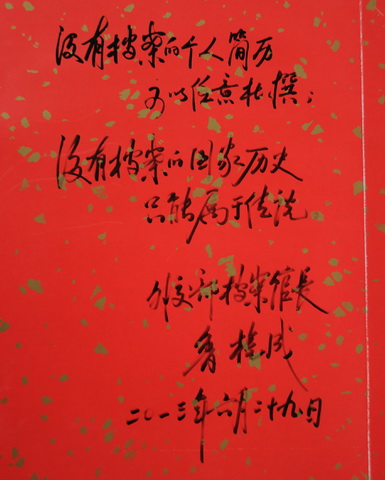 没有档案的个人简历
可以任意杜撰；
没有档案的国家历史
只能属于传说
外交部档案馆长
鲁桂成
二〇一三年六月二十九日